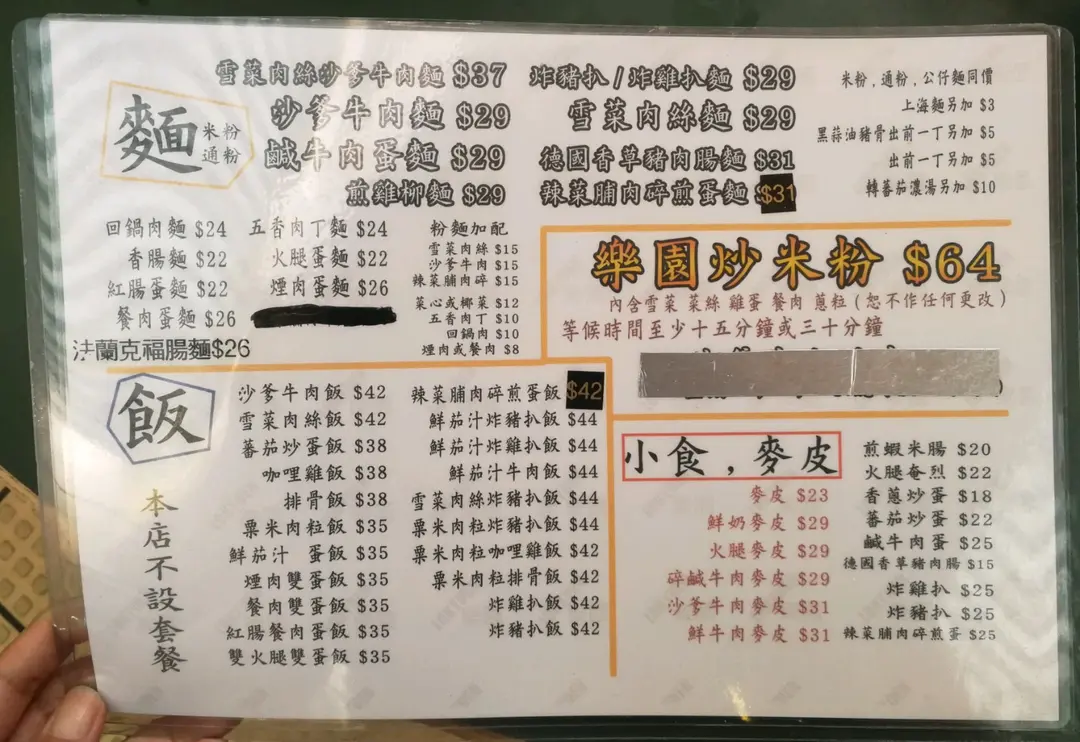 麵
米粉
通粉
雪菜肉絲沙爹牛肉麵 $37
沙爹牛肉麵 $29
鹹牛肉蛋麵 $29
煎雞柳麵 $29
炸豬扒/炸雞扒麵 $29
雪菜肉絲麵 $29
德國香草豬肉腸麵 $31
辣菜脯肉碎煎蛋麵 $31
米粉,通粉,公仔麵同價
上海麵另加 $3
黑蒜油豬骨出前一丁另加 $5
出前一丁另加 $5
轉蕃茄濃湯另加 $10
回鍋肉麵 $24
香腸麵 $22
紅腸蛋麵 $22
餐肉蛋麵 $26
法蘭克福腸麵$26
五香肉丁麵 $24
火腿蛋麵 $22
煙肉蛋麵 $26
粉麵加配
雪菜肉絲 $15
沙爹牛肉 $15
辣菜脯肉碎 $15
菜心或椰菜 $12
五香肉丁 $10
回鍋肉 $10
煙肉或餐肉 $8
樂園炒米粉 $64
內含雪菜 菜絲 雞蛋 餐肉 蔥粒(恕不作任何更改)
等候時間至少十五分鐘或三十分鐘
飯
本店不設套餐
沙爹牛肉飯 $42
雪菜肉絲飯 $42
蕃茄炒蛋飯 $38
咖哩雞飯 $38
排骨飯 $38
粟米肉粒飯 $35
鮮茄汁 蛋飯 $35
煙肉雙蛋飯 $35
餐肉雙蛋飯 $35
紅腸餐肉蛋飯 $35
雙火腿雙蛋飯 $35
辣菜脯肉碎煎蛋飯 $42
鮮茄汁炸豬扒飯 $44
鮮茄汁炸雞扒飯 $44
鮮茄汁牛肉飯 $44
雪菜肉絲炸豬扒飯 $44
粟米肉粒炸豬扒飯 $44
粟米肉粒咖哩雞飯 $42
粟米肉粒排骨飯 $42
炸雞扒飯 $42
炸豬扒飯 $42
小食,麥皮
麥皮 $23
鮮奶麥皮 $29
火腿麥皮 $29
碎鹹牛肉麥皮 $29
沙爹牛肉麥皮 $31
鮮牛肉麥皮 $31
煎蝦米腸 $20
火腿奄烈 $22
香蔥炒蛋 $18
蕃茄炒蛋 $22
鹹牛肉蛋 $25
德國香草豬肉腸 $15
炸雞扒 $25
炸豬扒 $25
辣菜脯肉碎煎蛋 $25